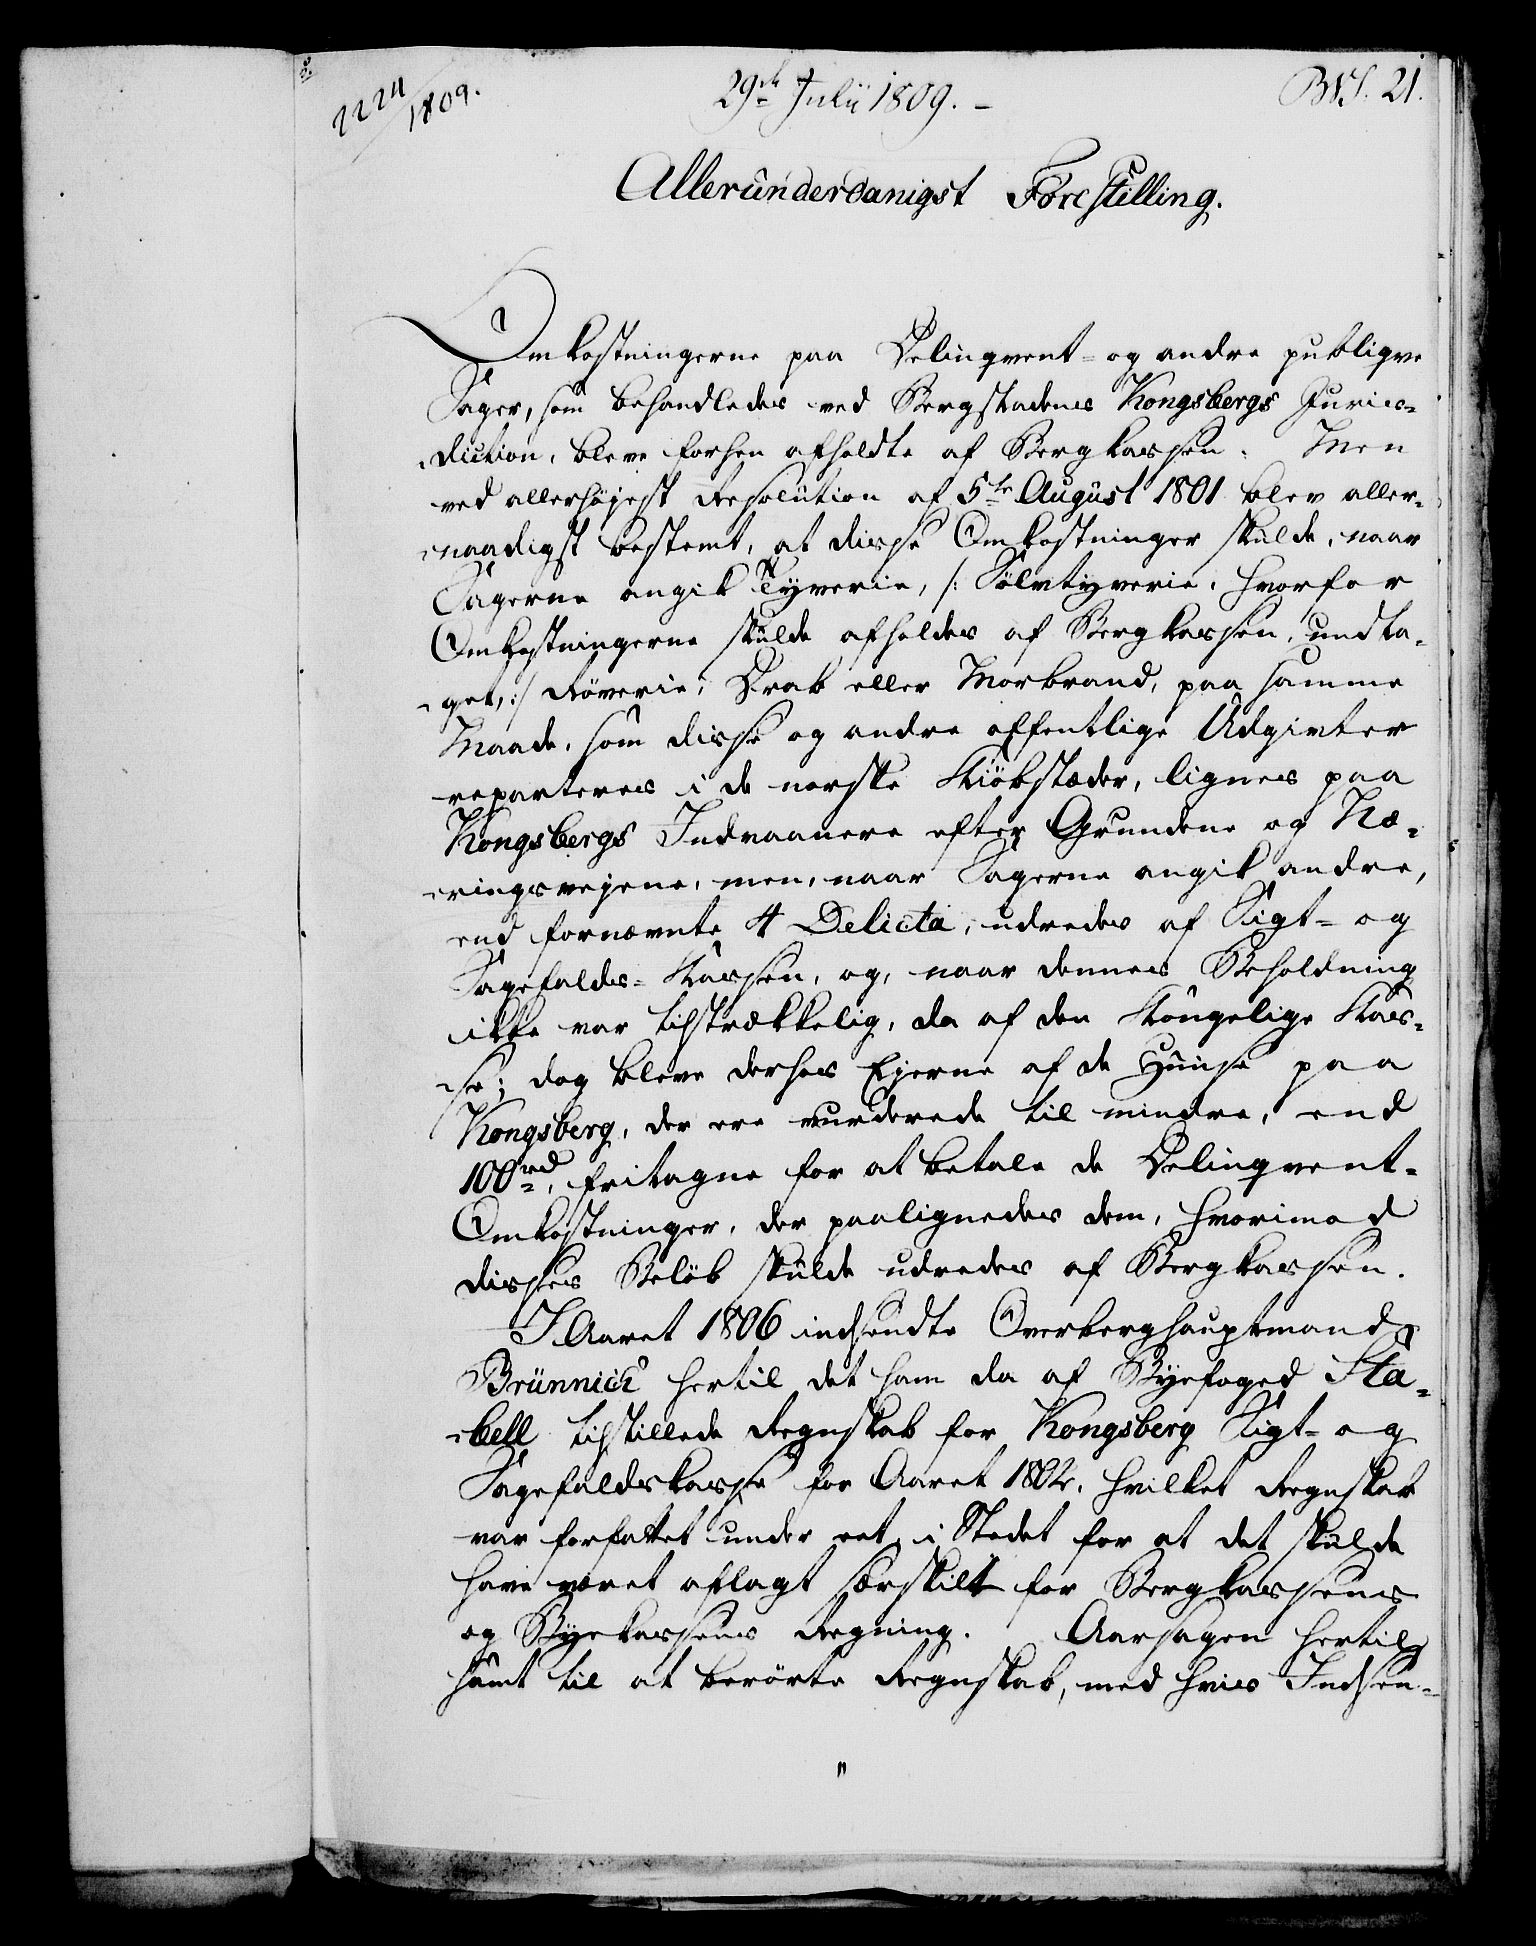 2224/1809.
29de Julii 1809. -
21.
Allerunderdanigst Forestilling.
Omkostningerne paa Delinqvent- og andre publiqve
Sager, som behandledes ved Bergstadens Kongsbergs Juris-
diction, bleve forhen afholdte af Bergkassen. Men
ved allerhöjest Resolution af 5te August 1801 blev aller-
naadigst bestemt, at disse Omkostninger skulde, naar
Sagerne angik Tyverie, /: Sölvtyverie, hvorfor
Omkostningerne skulde afholdes af Bergkassen, undta-
get, :/ Röverie, Drab eller Morbrand, paa samme
Maade, som disse og andre offentlige Udgivter
reparteres i de norske Kiöbstæder, lignes paa
Kongsbergs Indvaanere efter Grundene og Næ-
ringsvejene, men, naar Sagerne angik andre,
end fornævnte 4 Delicta, udredes af Sigt- og
Sagefalds-Kassen, og, naar dennes Beholdning
ikke var tilstrækkelig, da af den Kongelige Kas-
se; dog bleve derhos Ejerne af de Huuse paa
Kongsberg, der ere vurderede til mindre, end
100 rd, fritagne for at betale de Delinqvent-
Omkostninger, der paalignedes dem, hvorimod
disses Belöb skulde udredes af Bergkassen.
I Aaret 1806 indsendte Overberghauptmand
Brünnich hertil det ham da af Byefoged Sta-
bell tilstillede Regnskab for Kongsberg Sigt- og
Sagefaldskasse for Aaret 1802, hvilket Regnskab
var forfattet under eet, i Stedet for at det skulde
have været aflagt særskilt for Bergkassens
og Byekassens Regning. Aarsagen hertil
samt til at berörte Regnskab, med hvis Indsen-
"